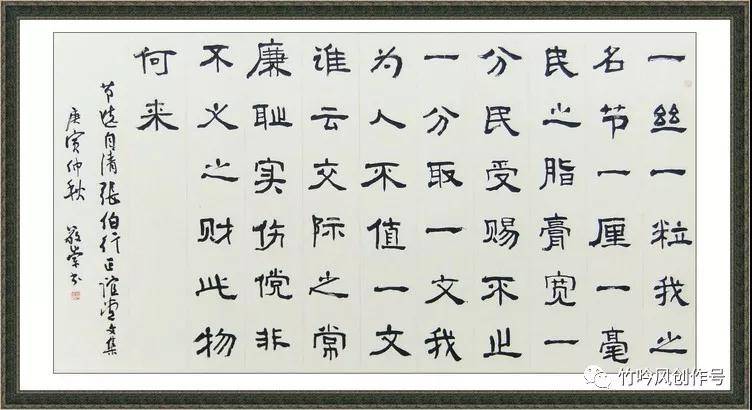 一丝一粒我之
名节一厘一毫
民之脂膏宽一
分民受赐不止
一分取一文我
为人不值一文
谁云交际之常
廉耻实伤傥非
不义之财此物
何来
节选自清张伯行正谊堂文集
庚寅仲秋 敬崇书
竹吟风创作号